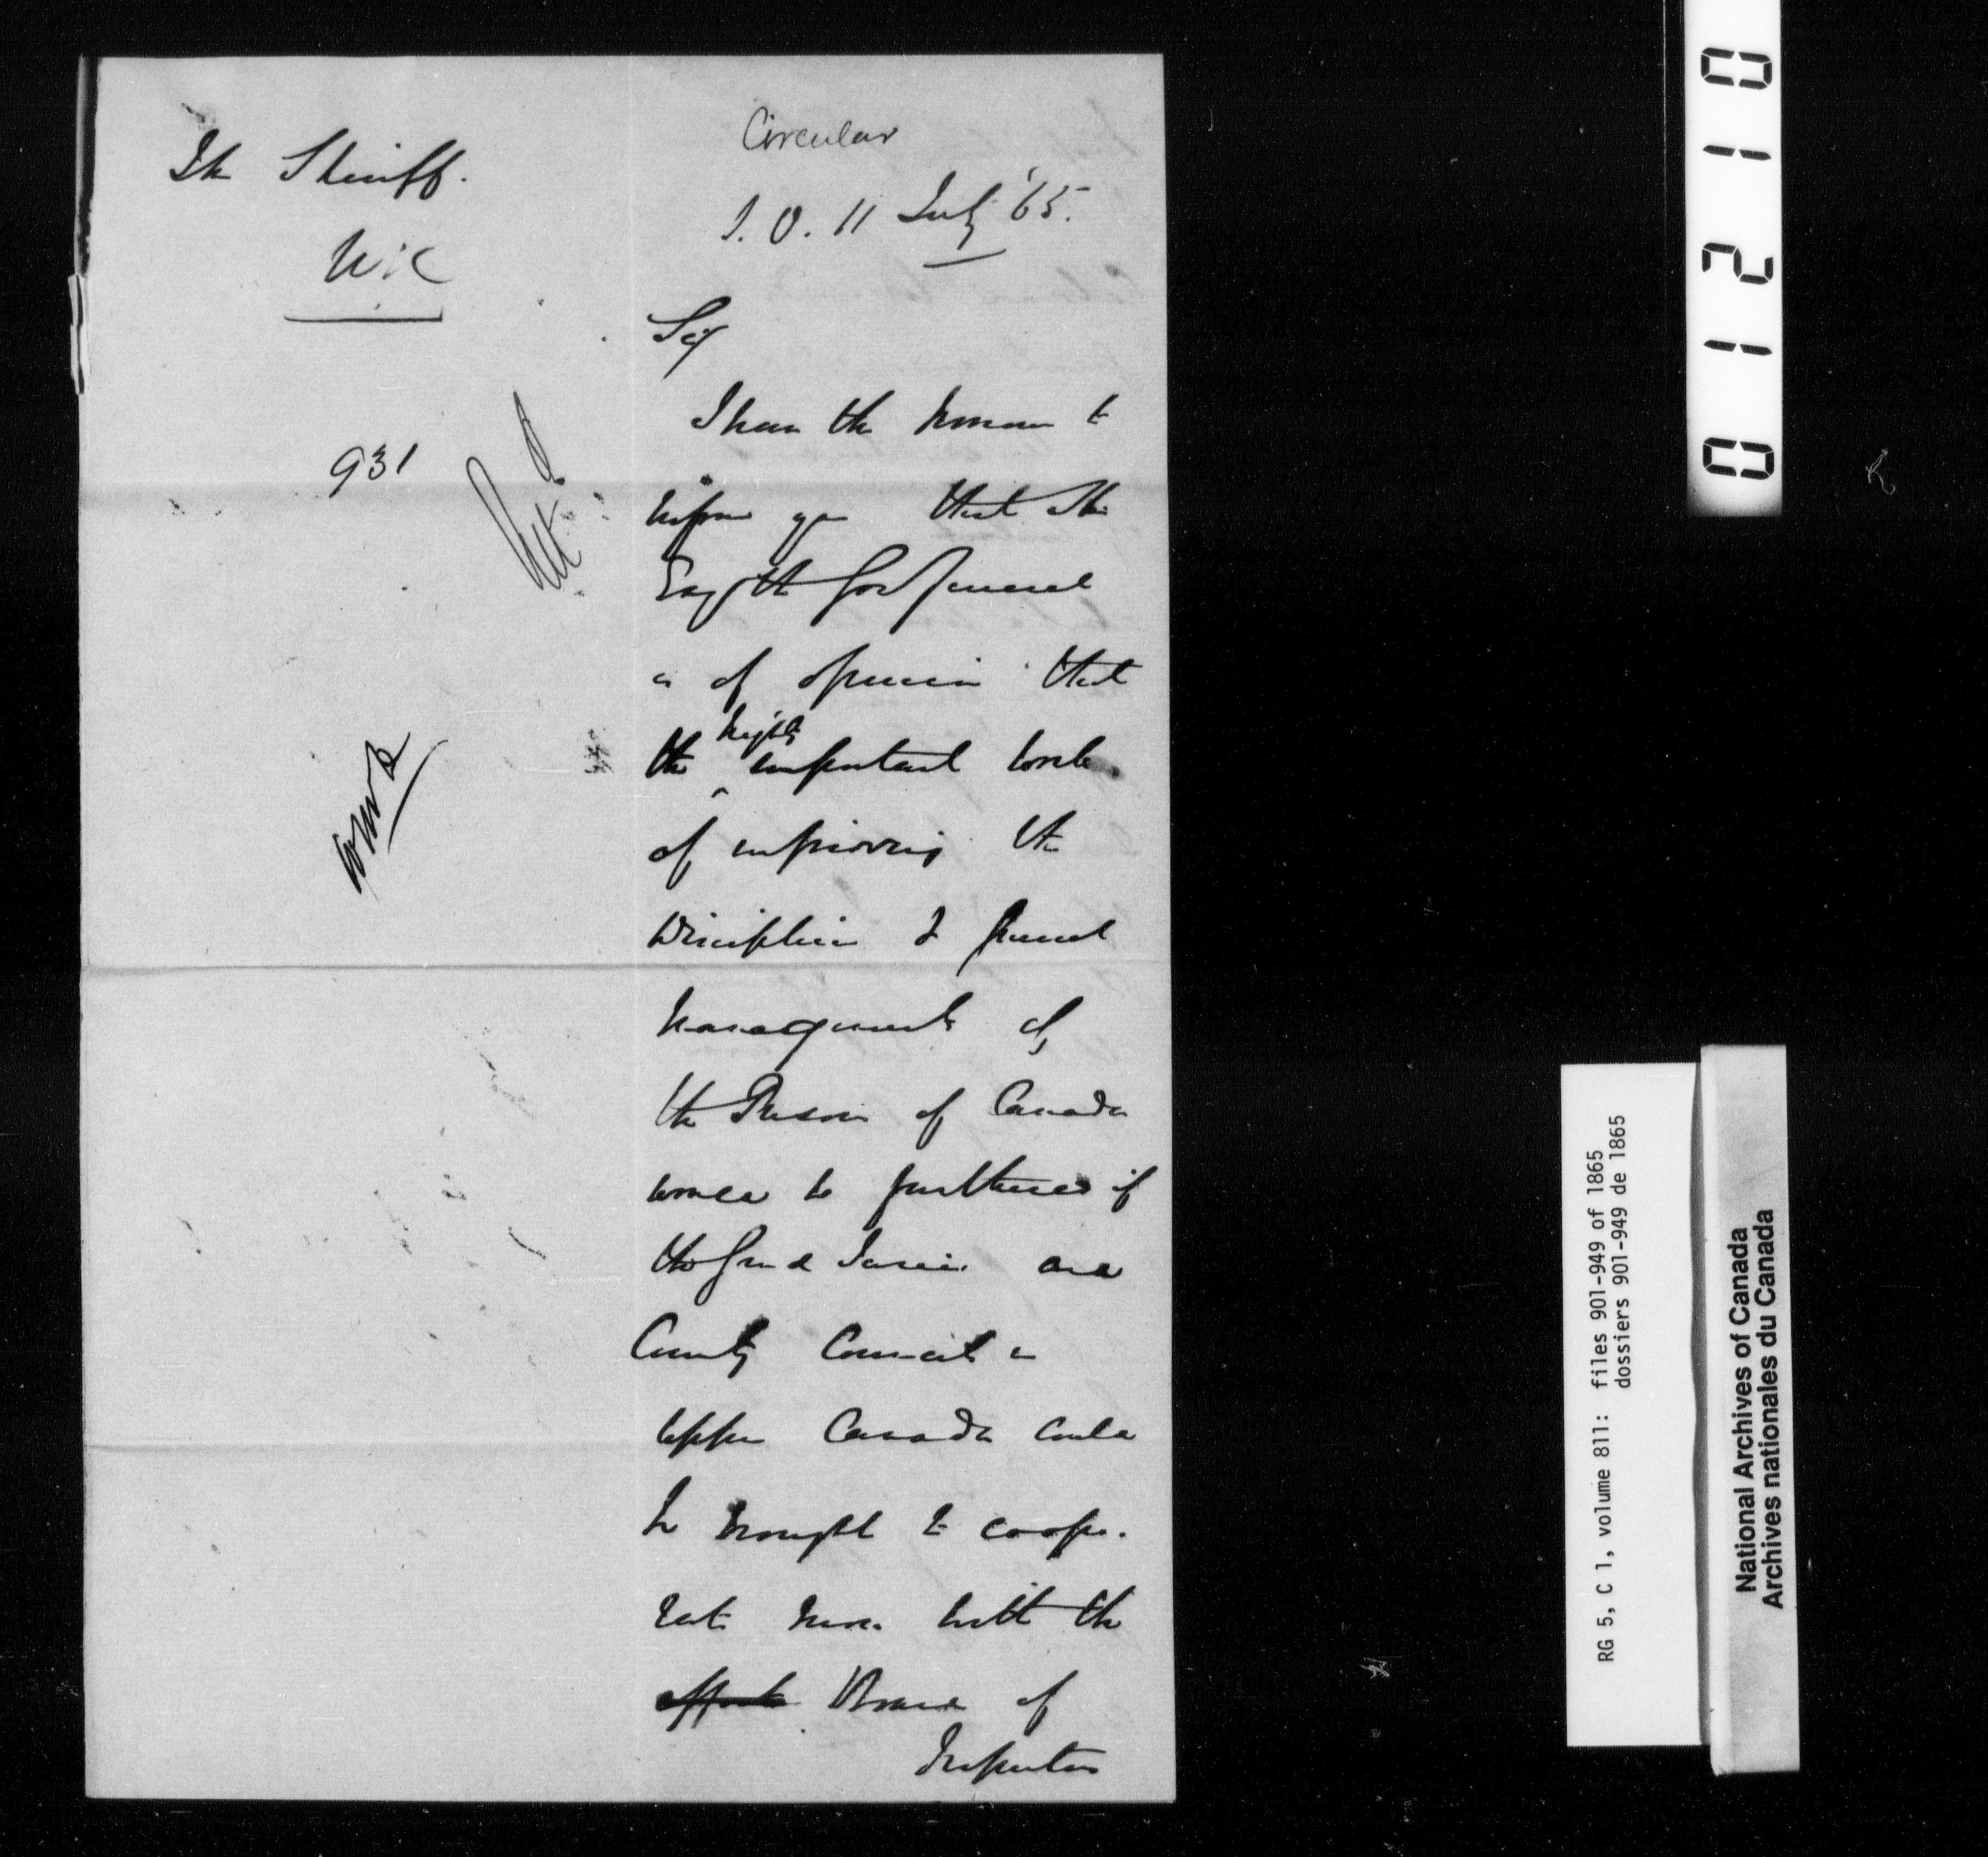 Circular
The Sheriff.
U.C
S. O. 11 July '65.
Sir
931
I have the honour to
inform you that His
Excy the Gov General
is of opinion that
the highly important work
of improving the
Discipline & general
management of
the Prisons of Canada
would be furthered if
the Grand Juries and
County Councils in
Upper Canada could
be brought to coope-
rate more with the
efforts Board of
Inspectors
01210
RG 5, C 1, volume 811: files 901-949 of 1865
dossiers 901-949 de 1865
National Archives of Canada
Archives nationales du Canada